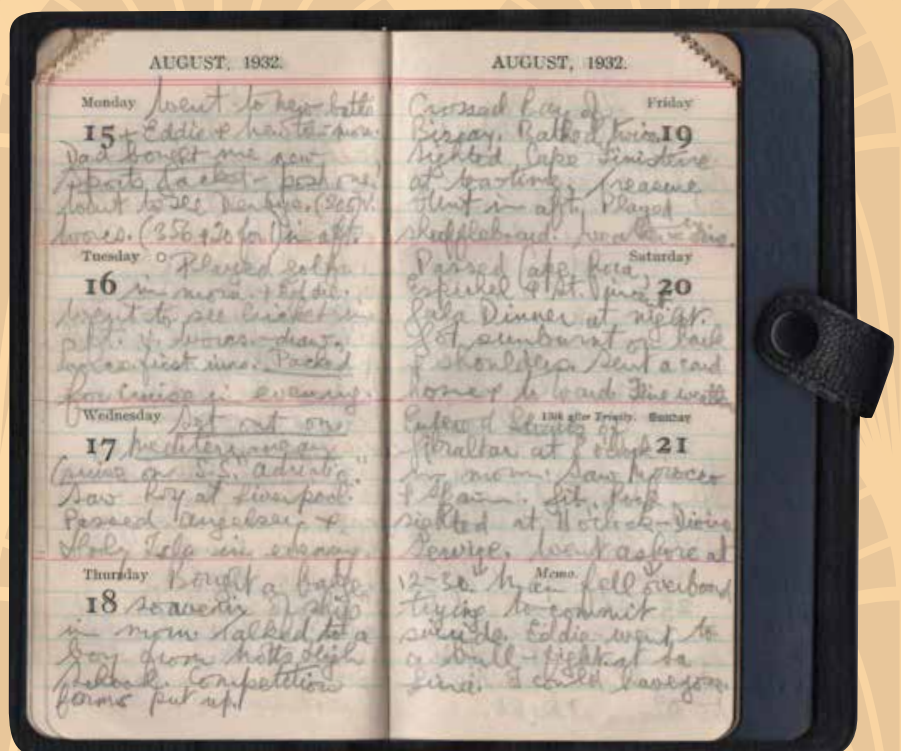 AUGUST, 1932.
Monday Went to new baths
15 + Eddie & in morn.
Dad bought me new
sports jacket - posh one,
went to see Derbys. (
worcs. (356 + 20 for 1) in aft.
Tuesday Played
16 in morn. + Eddie.
Went to see cricket in
aft. v. worcs. - draw.
first inns. Packed
for cruise in evening.
Wednesday Set out on
17 mediterranean
Cruise on S.S. "adriatic"
Saw Roy at Liverpool.
Passed anglesey &
Holy Isle in evening.
Thursday Bought a
18 souvenir of ship
in morn. Talked to a
boy from Notts High
School. Competition
forms put up.
AUGUST, 1932.
Crossed Bay of Friday
Biscay. Bathed twice 19
sighted Cape Finisterre
at . Treasure
Hunt in aft. Played
shuffleboard. weather = fine.
Passed Cape Roca, Saturday
Espichel & St. Vincent 20
Gala Dinner at night.
Got sunburnt on back
& shoulders. Sent a card
home & to ward. Fine weath
Entered Straits of 13th after Trinity. Sunday
Gibraltar at 8 o'clock 21
in morn. Saw Morocco
& Spain. Gib. Rock
sighted at 11 o'clock - Divine
Service. Went ashore at
12-30. Memo. Man fell overboard
trying to commit
suicide. Eddie went to
a bull-fight at La
Linea. I could have gone.